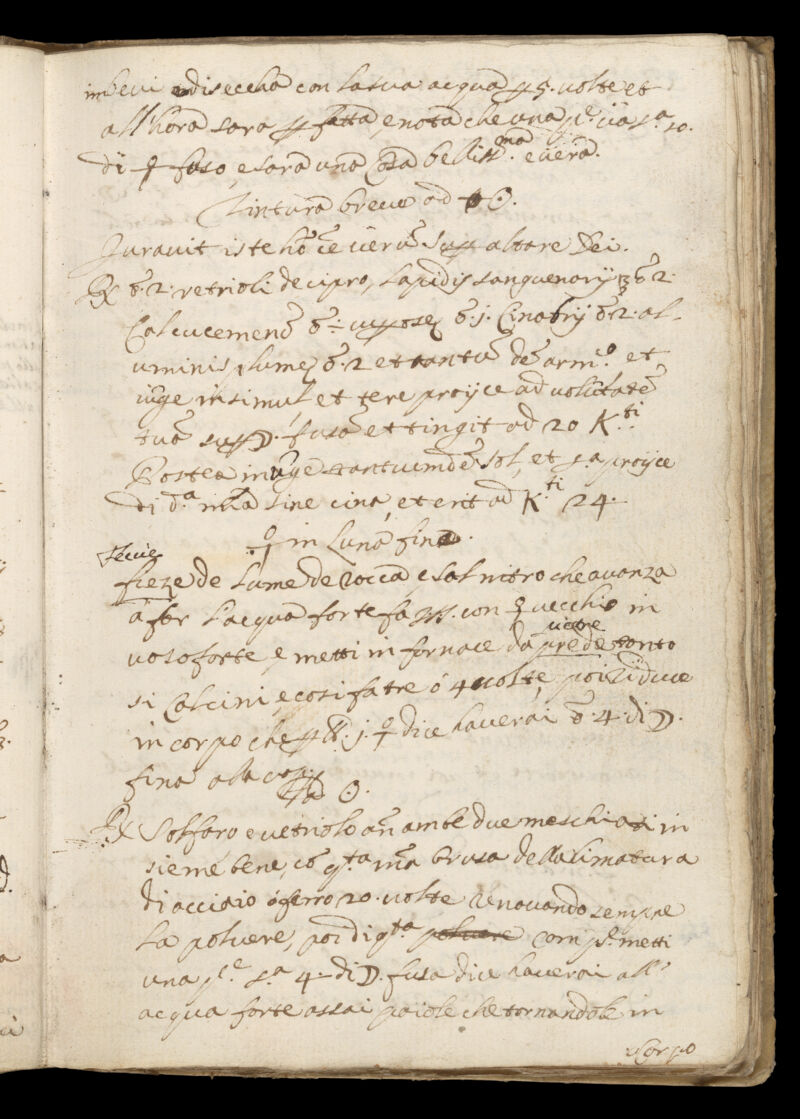 imbevi e disecha con la sua acqua p 5. volte et
all'hora sara fatta, e nota che una p.e va s.a 10.
di ☿ fuso, e sara una cosa belliss.ma e vera.
Tintura breve ad ☉.
Juravit iste ho͂ ce vera͂ sup altare Dei.
℞ ℥. 2. vetrioli de cipro, Lapidis sanguenarij ℥ 2.
Calcucemeno ℥. j. Cinabrij ℥. 2. al-
uminis plume ℥. 2 et tantu͂ de arm.o et
iu͂ge insimul et tere proijce ad volu͂tate͂
tua͂ sup ☽. fusa͂ et tingit ad 20 K.ti
Postea iu͂ge tantumde͂ sol, et s.a proijce
di d.a sine et erit ad K.ti 24.
♀ in Luna fina.
fecie
fieze de Lume de rocca e sal nitro che avanza
à far l'acqua forte fa con ♀ vecchio in
vaso forte, e metti in fornace da
vitre
prede tanto
si calcini, e cosi fa tre ò 4 volte, poi riduce
in corpo che p ℔. j. ♀ dice haverai ℥. 4. di ☽.
fina a la
ad ☉.
℞ Solfaro e vetriolo an͂ ambe due meschiati in
sieme bene, co͂ q.ta brusa della limatura
di acciaio ò ferro 20. volte renovando sempre
la polvere, poi di q.ta polvere com p.e metti
una p.e s.a 4. di ☽. fusa dice haverai all'
acqua forte assai paiole che tornandole in
corpo